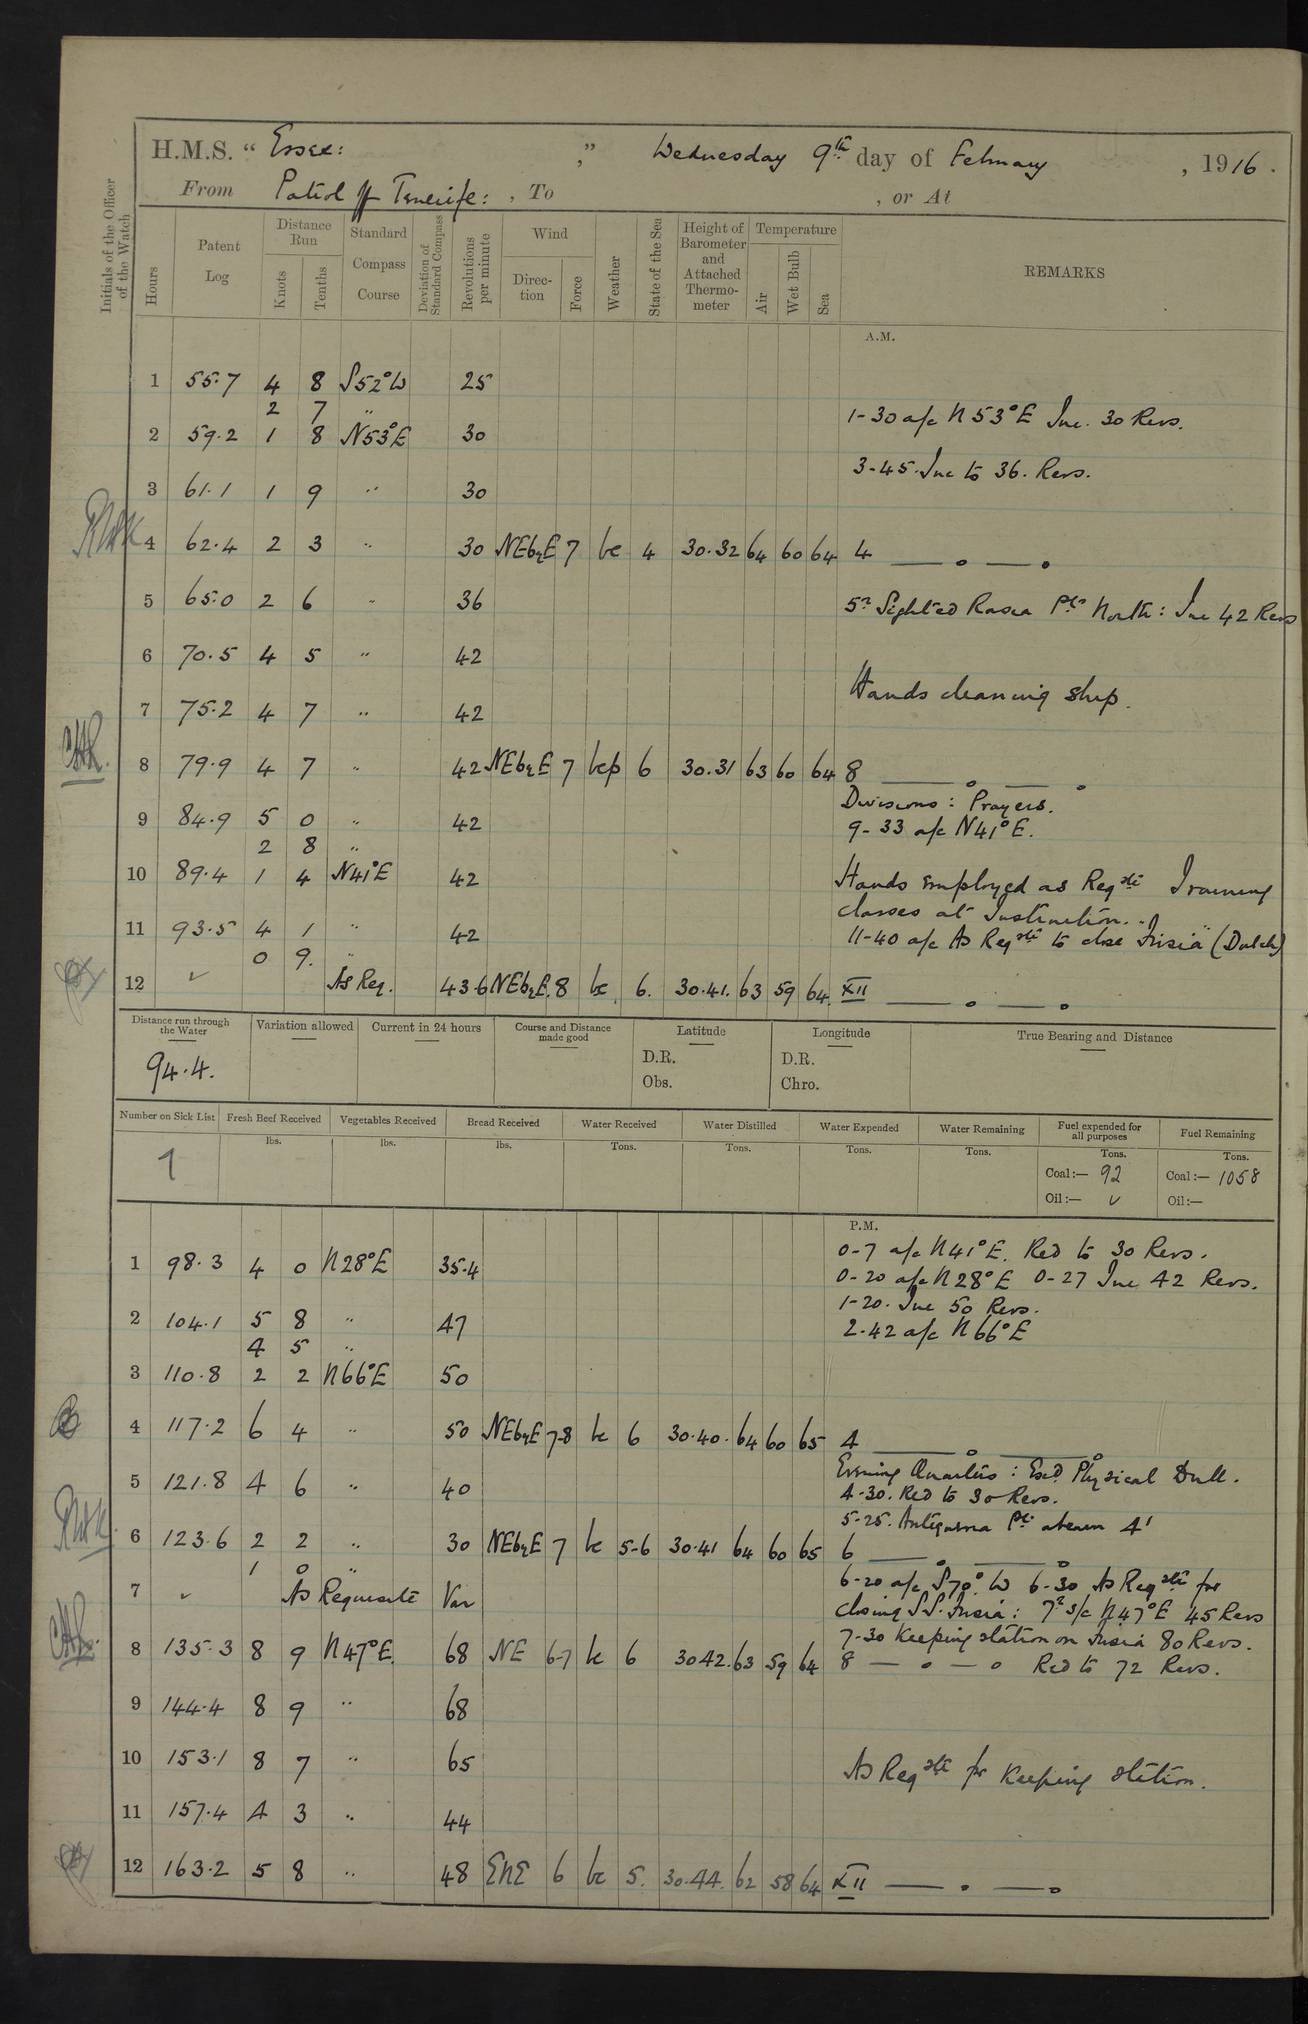 H.M.S. “ Essex: ,” Wednesday 9th day of February , 1916 .
From Patrol off Tenerife: , To , or At
Initials of the Officer of the Watch
Hours
Patent Log
Distance Run
Knots
Tenths
Standard Compass Course
Deviation of Standard Compass
Revolutions per minute
Wind
Direc-tion
Force
Weather
State of the Sea
Height of Barometer and Attached Thermo-meter
Temperature
Air
Wet Bulb
Sea
REMARKS
A.M.
1 55.7 4 8 S52°W 25
2 7 "
1-30 a/c N53°E Inc. 30 Revs.
2 59.2 1 8 N53°E 30
3-45. Inc to 36. Revs.
3 61.1 1 9 " 30
4 62.4 2 3 " 30 NEbyE 7 bc 4 30.32 64 60 64 4
5 65.0 2 6 " 36
5.0 Sighted Rasca Pt. North: Inc 42 Revs
6 70.5 4 5 " 42
Hands cleaning ship.
7 75.2 4 7 " 42
8 79.9 4 7 " 42 NEbyE 7 bcp 6 30.31 63 60 64 8
Divisions: Prayers.
9 84.9 5 0 " 42
9-33 a/c N41°E.
2 8 "
10 89.4 1 4 N41°E 42
Hands employed as Reqste Training
classes at Instruction.
11 93.5 4 1 " 42
11-40 a/c As Reqste to close Frisia (Dutch)
0 9. "
12 ✓ As Req. 43.6 NEbyE. 8 bc 6. 30.41. 63 59 64. XII
Distance run through the Water
94.4.
Variation allowed
Current in 24 hours
Course and Distance made good
Latitude
D.R.
Obs.
Longitude
D.R.
Chro.
True Bearing and Distance
Number on Sick List
Fresh Beef Received
Vegetables Received
Bread Received
Water Received
Water Distilled
Water Expended
Water Remaining
Fuel expended for all purposes
Fuel Remaining
lbs. lbs. lbs. Tons. Tons. Tons. Tons. Tons. Tons.
Coal:— 92 Coal:— 1058
Oil:— ✓ Oil:—
P.M.
0-7 a/c N41°E. Red to 30 Revs.
1 98.3 4 0 N28°E 35.4
0-20 a/c N28°E 0-27 Inc 42 Revs.
1-20. Inc 50 Revs.
2 104.1 5 8 " 47
2.42 a/c N66°E
4 5 "
3 110.8 2 2 N66°E 50
4 117.2 6 4 " 50 NEbyE 7-8 bc 6 30.40. 64 60 65 4
Evening Quarters: Exd. Physical Drill.
5 121.8 4 6 " 40
4-30. Red to 30 Revs.
5-25. Antequera Pt. abeam 4'
6 123.6 2 2 " 30 NEbyE 7 bc 5-6 30.41 64 60 65 6
1 0 "
6-20 a/c S70°W 6-30 As Reqste for
7 ✓ As Requisite Var
closing S.S. Frisia: 7.0 s/c N47°E 45 Revs
7-30 Keeping station on Frisia 80 Revs.
8 135.3 8 9 N47°E. 68 NE 6-7 bc 6 30.42. 63 59 64 8 Red to 72 Revs.
9 144.4 8 9 " 68
10 153.1 8 7 " 65
As Reqste for Keeping station.
11 157.4 4 3 " 44
12 163.2 5 8 " 48 ENE 6 bc 5. 30.44. 62 58 64 XII